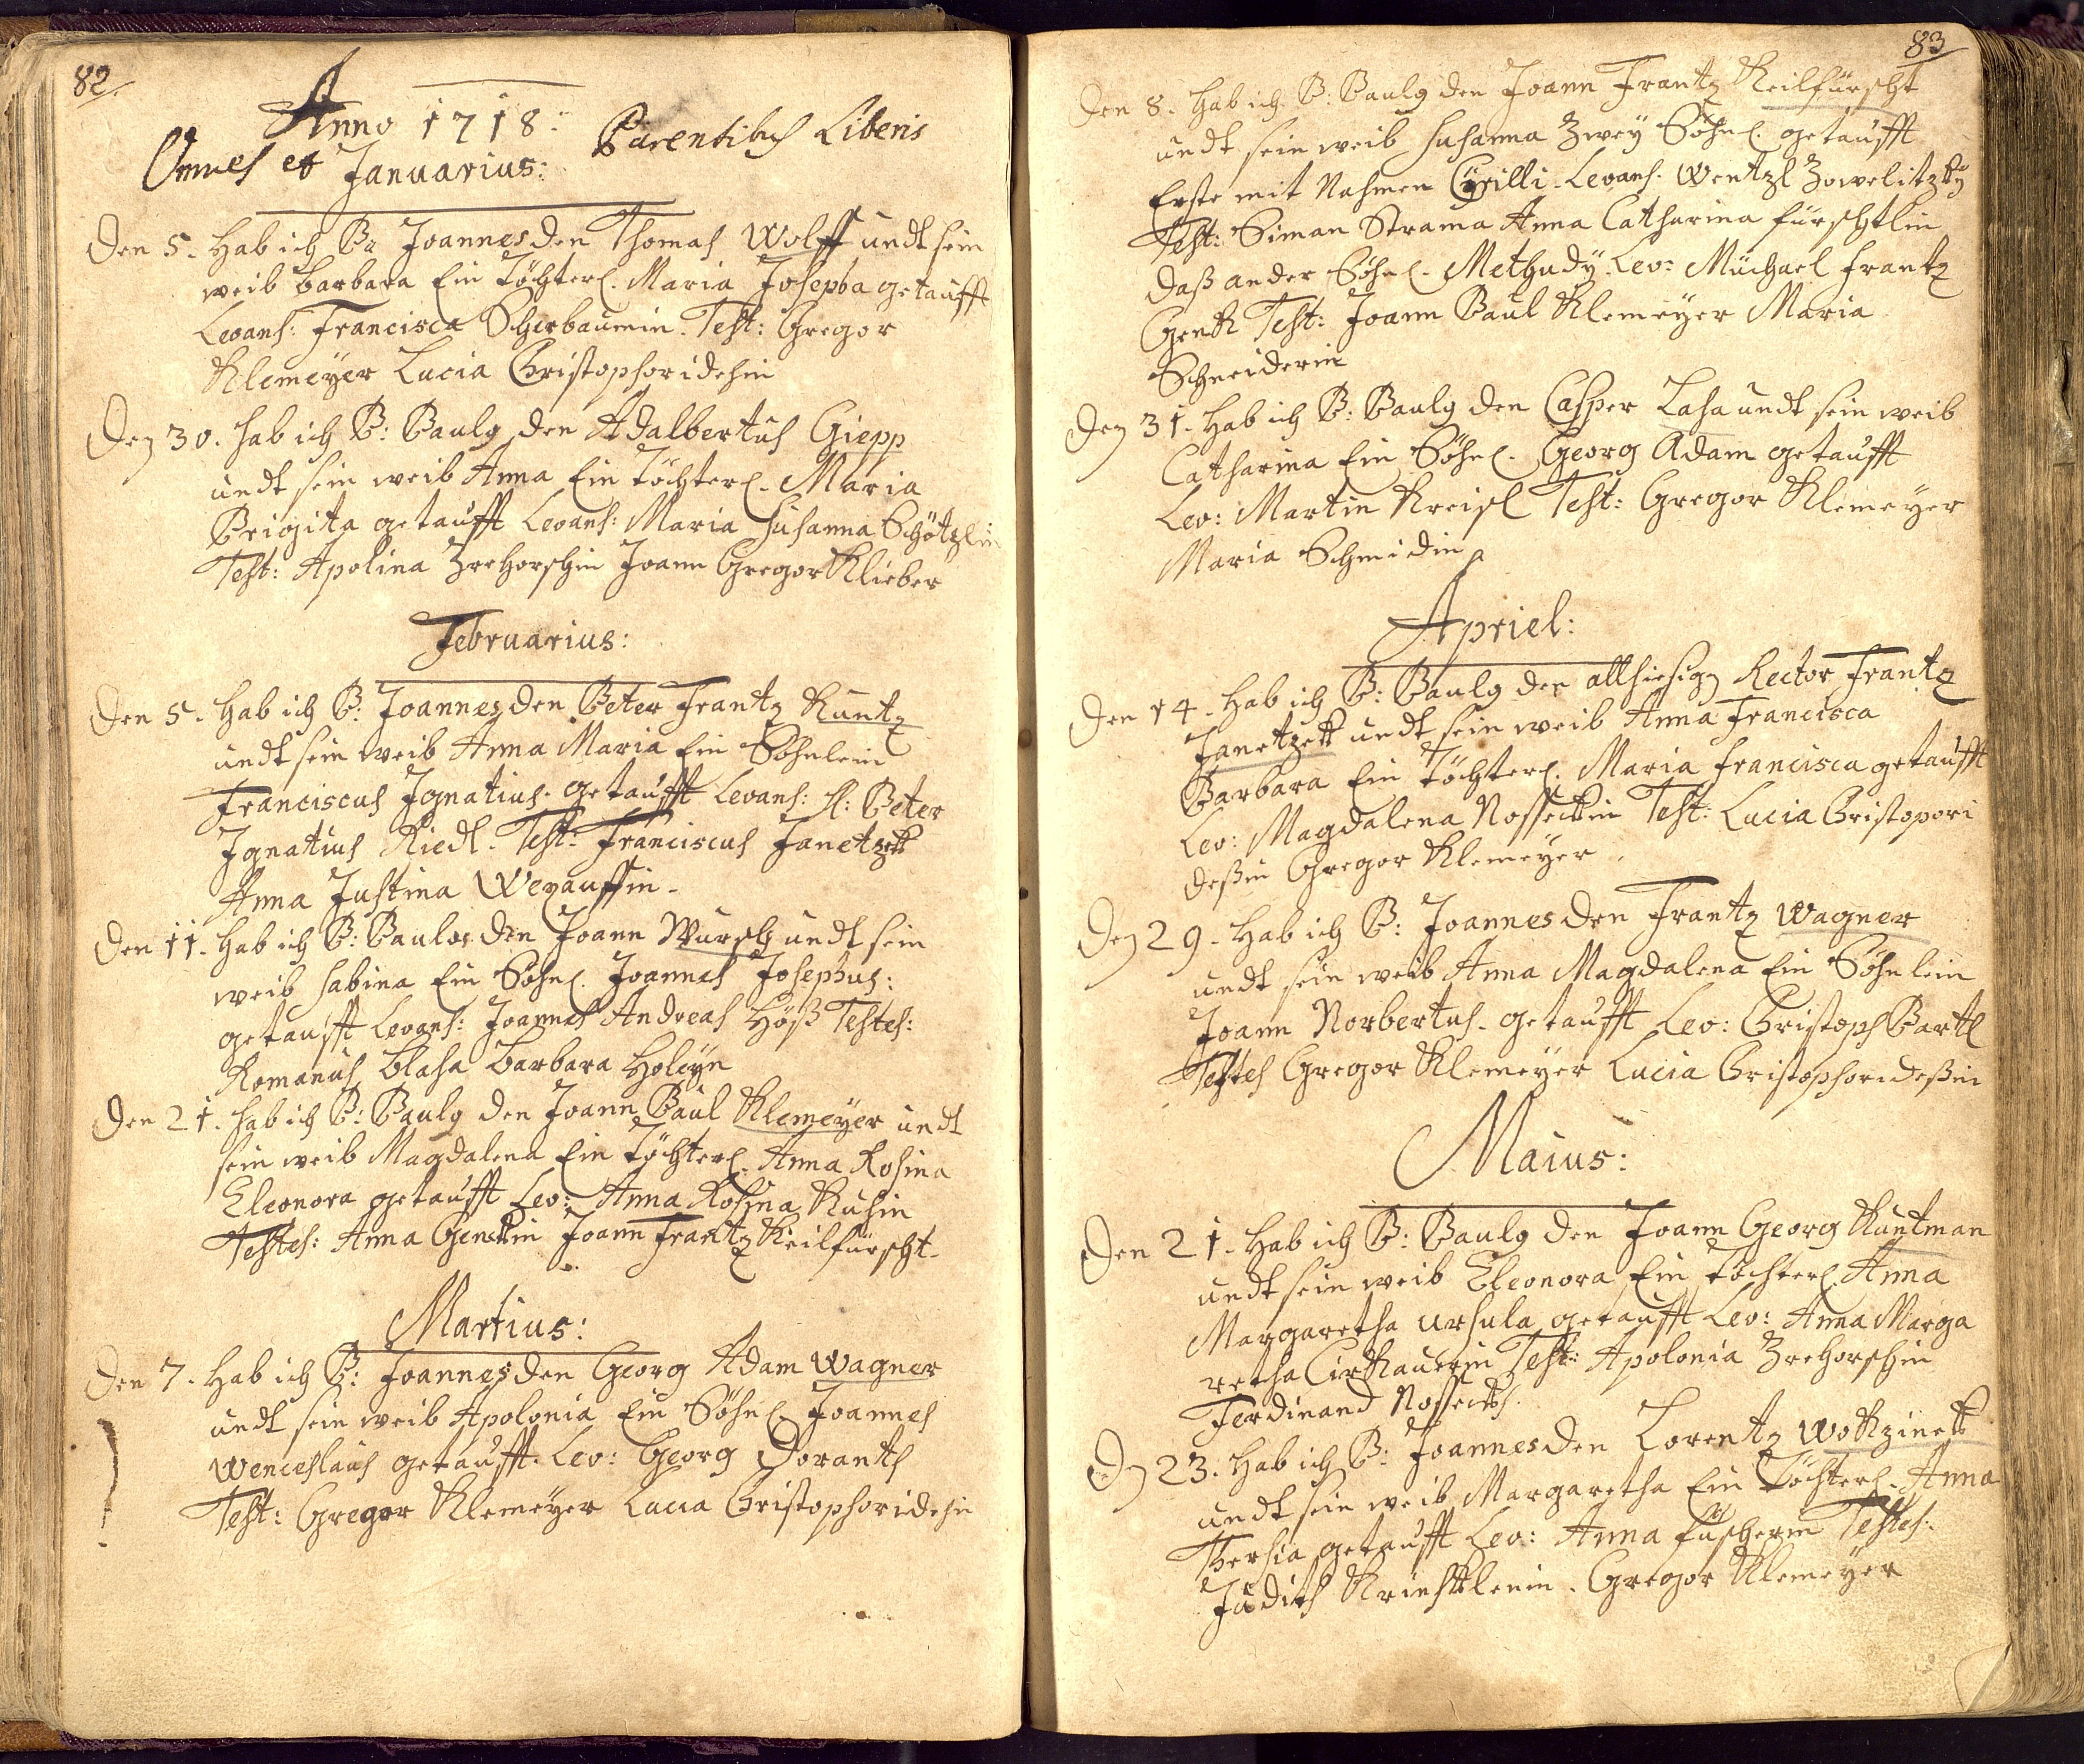 82.
Anno 1718:
Omnes et Januarius: Parentibus Liberis
Den 5. Hab ich P: Joannes den Thomas Wolff undt sein
weib barbara Ein töchterl. Maria Josepha getaufft
Levans: Francisca Scherbaumin. Test: Gregor
Klemeÿer Lucia Christophoridesin
Den 30. hab ich P: Paulg den Adalbertus Giepp
undt sein weib Anna Ein töchterl. Maria
Brigita getaufft Levans: Maria Susanna Schötzlin
Test: Apolina Zrehorschin Joann Gregor Klieber
Februarius:
Den 5. Hab ich P: Joannes den Peter Frantz Kuntz
undt sein weib Anna Maria Ein Söhnlein
Franciscus Ignatius. getaufft Levans: H: Peter
Ignatius Riedl. Test: Franciscus Janetzek
Anna Justina
Den 11. Hab ich P: Paulus den Joann Wursch undt sein
weib Sabina Ein Söhnl. Joannes Josephus:
getaufft Levans: Joannes Andreas Höß Testes:
Romanus blaha barbara Holeÿn
Den 21. hab ich P: Paulg den Joann Paul Klemeÿer undt
sein weib Magdalena Ein töchterl. Anna Rosina
Eleonora getaufft Lev: Anna Rosina Kuhin
Testes: Anna Genckin Joann Frantz Keilfürscht.
Martius:
Den 7. Hab ich P: Joannes den Georg Adam Wagner
undt sein weib Apolonia Ein Söhnl. Joannes
Wenceslaus getaufft. Lev: Georg Dorankh
Test: Gregor Klemeÿer Lucia Christophoridesin
83
Den 8. Hab ich P: Paulg den Joann Frantz Keilfürscht
undt sein weib Susanna Zweÿ Söhnl. getaufft
Erste mit Nahmen Cÿrilli. Levans. Wentzl Zowelitzkÿ
Test: Siman Strama Anna Catharina fürschtlin
Daß ander Söhnl. Methudÿ. Lev: Müchael Frantz
Genk Test: Joann Paul Klemeÿer Maria
Schneiderin
Den 31. Hab ich P: Paulg den Casper Laha undt sein weib
Catharina Ein Söhnl. Georg Adam getaufft
Lev: Martin Kreisl Test: Gregor Klemeÿer
Maria Schmidin
Apriel:
Den 14. Hab ich P: Paulg den allhiesig Rector Frantz
Janetzek undt sein weib Anna Francisca
Barbara Ein töchterl. Maria Francisca getaufft
Lev: Magdalena Nosseckin Test: Lucia Christopori
deßin Gregor Klemeÿer.
Den 29. Hab ich P: Joannes den Frantz Wagner
undt sein weib Anna Magdalena Ein Söhnlein
Joann Norbertus. getaufft Lev: Christoph Bartl
Testes Gregor Klemeÿer Lucia Christophorideßin
Maius:
Den 21. Hab ich P: Paulg den Joann Georg Kuntman
undt sein weib Eleonora Ein töchterl. Anna
Margaretha Ursula getaufft Lev: Anna Marga
retha Cirkauerin Test: Apolonia Zrehorschin
Ferdinand Nosseckh.
Den 23. Hab ich P: Joannes den Lorentz Wokzinek
undt sein weib Margaretha Ein Töchterl. Anna
Thersia getaufft Lev: Anna Füscherin Testes:
Judith Gregor Klemeÿer